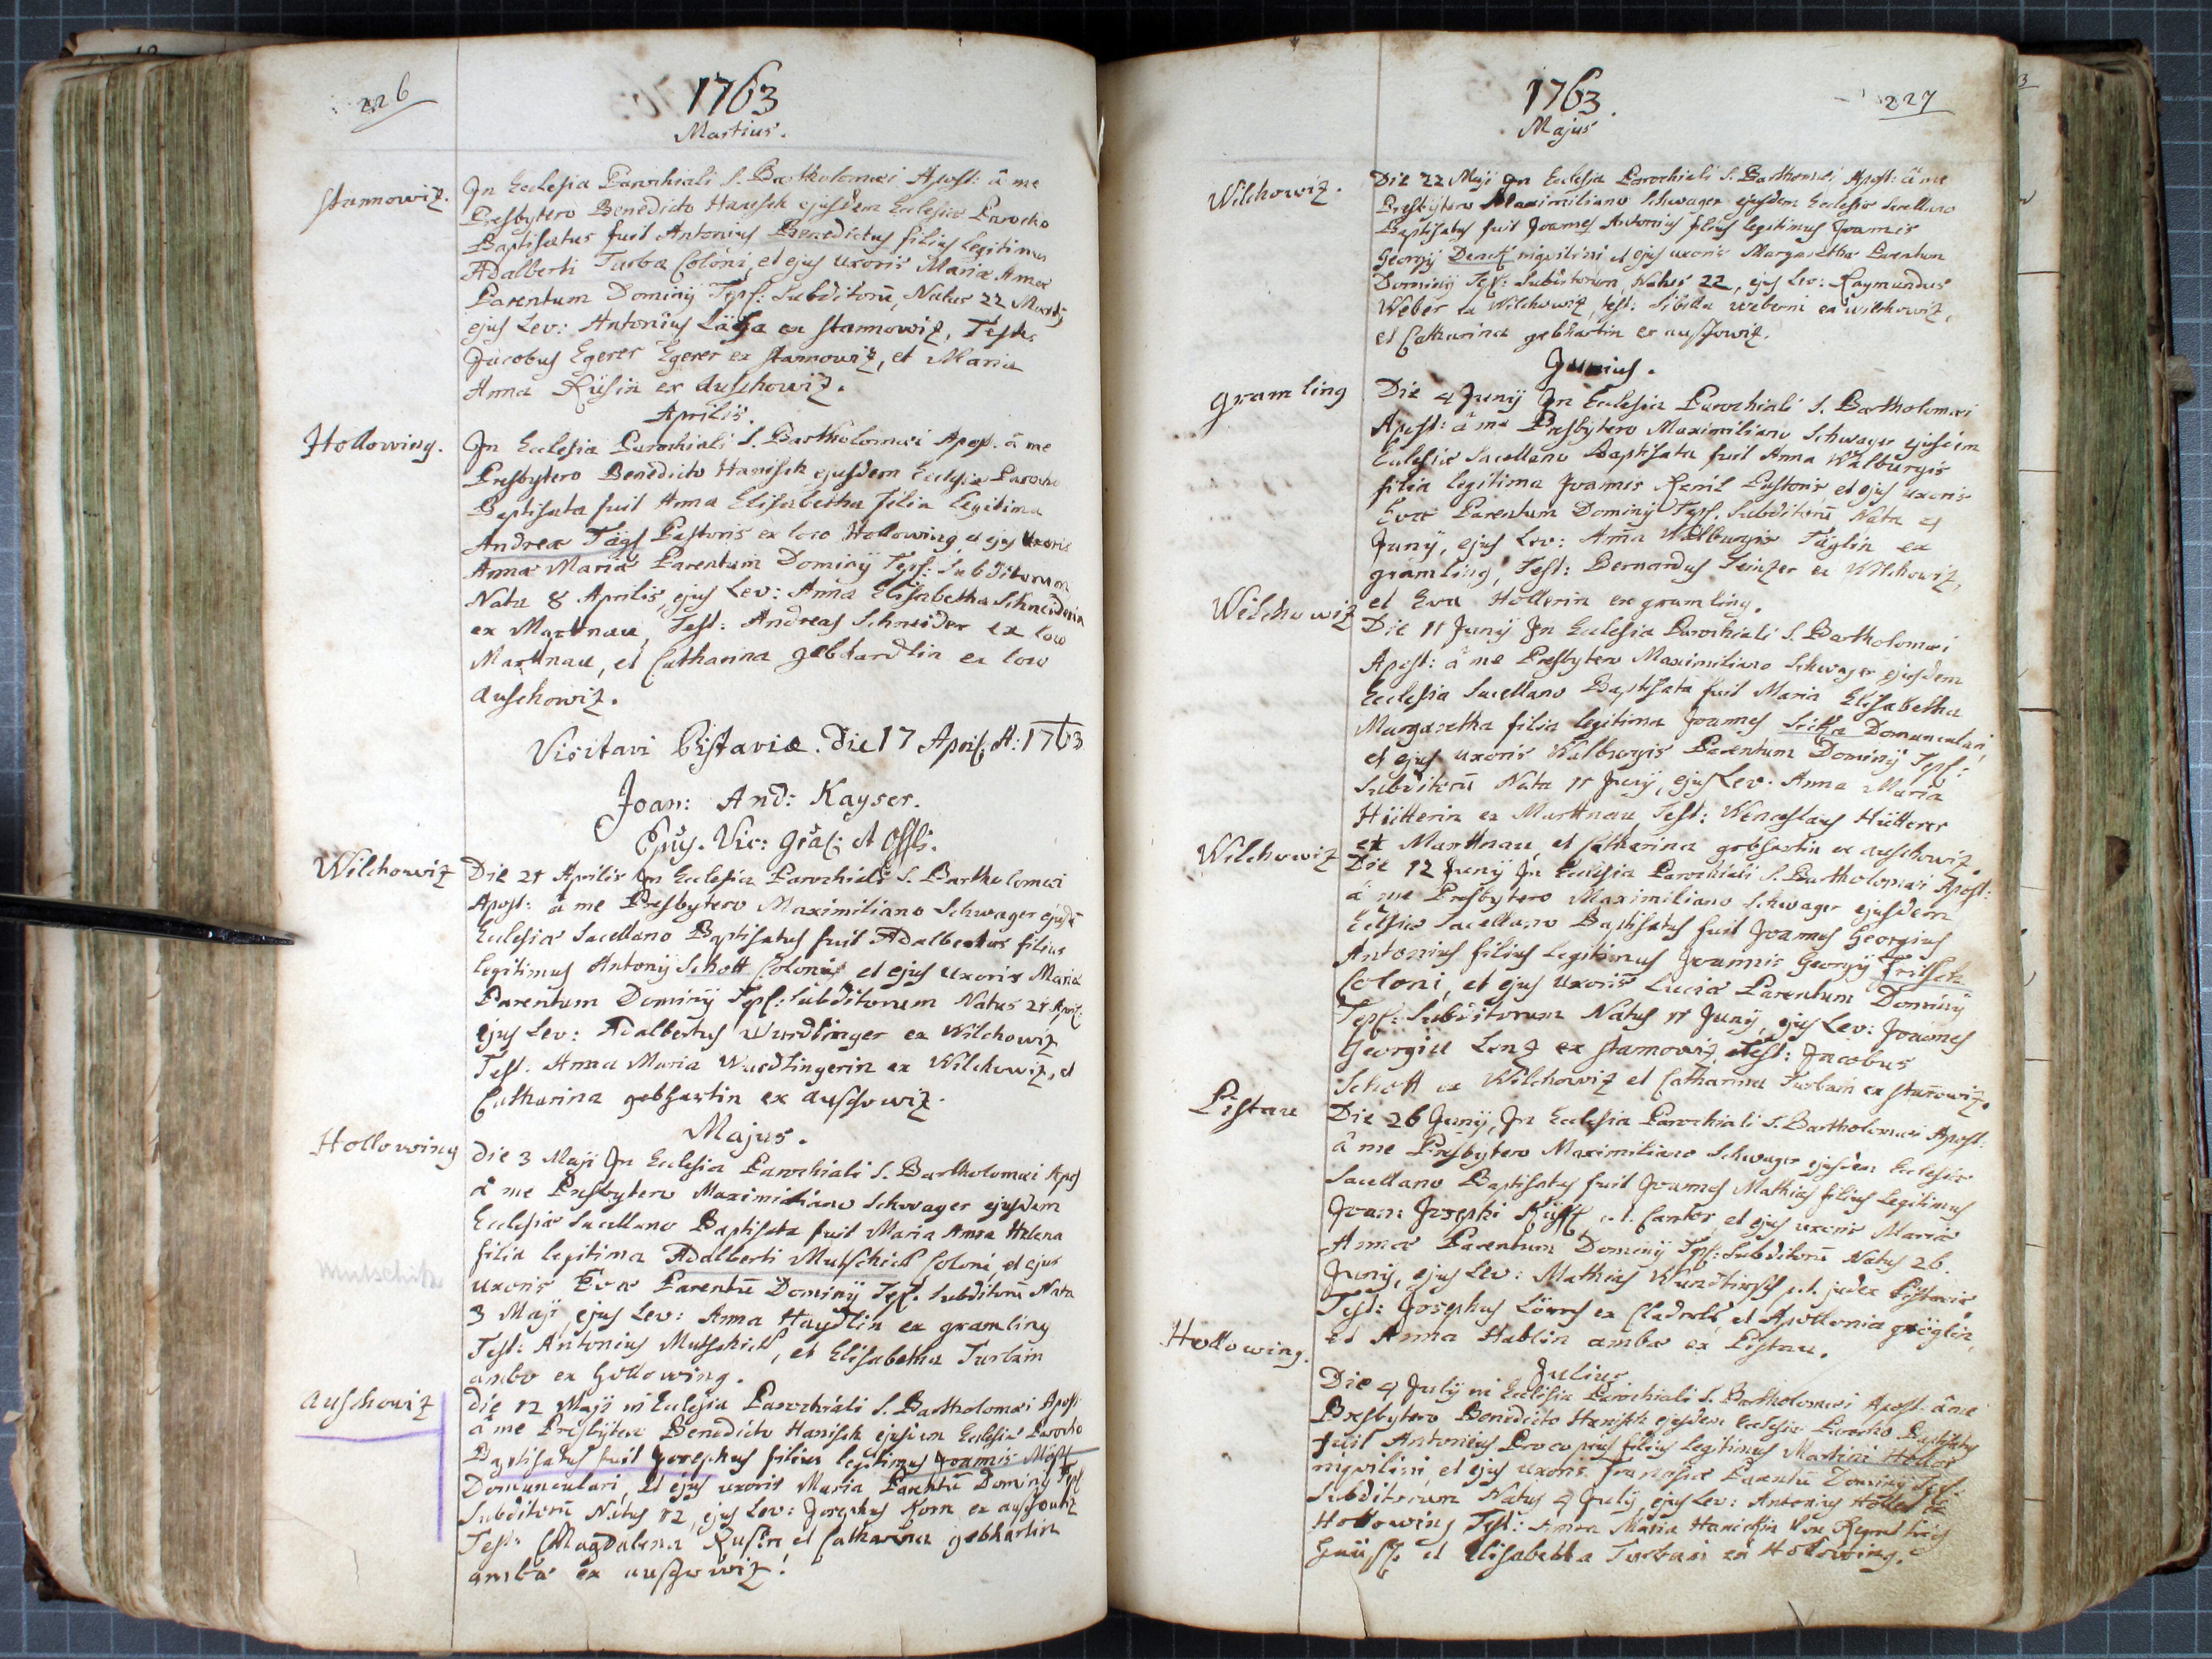 226
1763
Martius.
Stannowiz.
In Ecclesia Parochiali S. Bartholomæi Apost: â me
Presbytero Benedicto Hanisch ejusdem Ecclesiæ Parocho
Baptisatus fuit Antonius Benedictus filius legitimus
Adalberti Turba Coloni, et ejus uxoris Mariæ Annæ
Parentum Dominÿ Tepl: Subditorũ, Natus 22 Martÿ
ejus Lev: Antonius ex Stannowiz, Test:
Jacobus Egerer Egerer ex Stannowiz, et Maria
Anna Rüsin ex Auschowiz.
Aprilis.
Hollowing.
In Ecclesia Parochiali S. Bartholomæi Apost. â me
Presbytero Benedicto Hanisch ejusdem Ecclesiæ Parocho
Baptisata fuit Anna Elisabetha filia Legitima
Andreæ Tägl Pastoris ex loco Hollowing, et ejus Uxoris
Annæ Mariæ Parentum Dominÿ Tepl: Subditorum
Nata 8 Aprilis, ejus Lev: Anna Elisabetha Schneiderin
ex Martnau, Test: Andreas Schneider ex loco
Martnau, et Catharina gebhardtin ex loco
Auschowiz.
Visitavi Pistaviæ. die 17 April. A: 1763
Joan: And: Kayser.
Epũs. Vic: Grãl: et Offls.
Wilchowiz
Die 21 Aprilis In Ecclesia Parochiali S. Bartholomæi
Apost: â me Presbytero Maximiliano Schwager ejusdẽ
Ecclesiæ Sacellano Baptisatus fuit Adalbertus filius
legitimus Antonÿ Schott Colonij et ejus uxoris Mariæ
Parentum Dominÿ Tepl: Subditorum Natus 21 April:
ejus Lev: Adalbertus Wurdtinger ex Wilchowiz
Test: Anna Maria Wurdtingerin ex Wilchowiz, et
Catharina gebhartin ex Auschowiz.
Majus.
Hollowing
die 3 Maji In Ecclesia Parochiali S. Bartholomæi Apos
â me Presbytero Maximiliano Schwager ejusdem
Ecclesiæ Sacellano Baptisata fuit Maria Anna Helena
filia legitima Adalberti Mutschick Coloni, et ejus
Mutschik
uxoris Evæ Parentũ Dominÿ Tepl. Subditorũ Nata
3 Maji, ejus Lev: Anna Haydlin ex gramling
Test: Antonius Mutschick, et Elisabetha Turbain
ambo ex Hollowing.
Auschowiz
die 12 Maji in Ecclesia Parochiali S. Bartholomæi Apost
â me Presbÿtero Benedicto Hanisch ejusdem Ecclesiæ Parocho
Baptisatus fuit Josephus filius legitimus Joannis
Domunculari, et ejus uxoris Mariæ Parentũ Dominÿ Tepl
Subditorũ Natus 12, ejus Lev: Josephus Korn ex auschowiz
Test: Magdalena Rusin et Catharina gebhartin
ambæ ex auschowiz!
227
1763.
Majus
Wilchowiz.
Die 22 Maji In Ecclesia Parochiali S. Bartholomæi Apost: â me
Presbytero Maximiliano Schwager ejusdem Ecclesiæ Sacellano
Baptisatus fuit Joannes Antonius filius legitimus Joannis
Georgÿ inquilini et ejus uxoris Margarethæ Parentum
Dominÿ Tepl: Subditorum, Natus 22, ejus Lev: Raymundus
Weber ex Wilchowiz, test: Sibilla Weberni ex Wilchowiz,
et Catharina gebhartin ex auschowiz.
Junius.
gramling
Die 4 Junÿ In Ecclesia Parochiali S. Bartholomæi
Apost: â me Presbytero Maximiliano Schwager ejusdem
Ecclesiæ Sacellano Baptisata fuit Anna Walburgis
filia legitima Joannis Pastoris, et ejus uxoris
Evæ Parentum Dominÿ Tepl. Subditorũ Nata 4
Junÿ, ejus Lev: Anna Walburgis Täglin ex
gramling, Test: Bernardus ex Wilchowiz,
et Eva Hollerin ex gramling.
Wilchowiz
Die 11 Junÿ In Ecclesia Parochiali S. Bartholomæi
Apost: â me Presbytero Maximiliano Schwager ejusdem
Ecclesiæ Sacellano Baptisata fuit Maria Elisabetha
Margaretha filia legitima Joannes Domuncularij
et ejus uxoris Walburgis Parentum Dominÿ Tepl:
Subditorũ Nata 11 Junÿ, ejus Lev. Anna Maria
Hütterin ex Martnau, Test: Wenceslaus Hütterer
ex Martnau, et Catharina gebhartin ex auschowiz.
Wilchowiz
Die 12 Junÿ In Ecclesia Parochiali S. Bartholomæi Apost:
â me Presbytero Maximiliano Schwager ejusdem
Ecclesiæ Sacellano Baptisatus fuit Joannes Georgius
Antonius filius legitimus Joannis Georgÿ Fritsch
Coloni, et ejus uxoris Luciæ Parentum Dominÿ
Tepl: Subditorum Natus 11 Junÿ, ejus Lev: Joannes
Georgiu Lenz ex Stanowiz, Test: Jacobus
Schott ex Wilchowiz et Catharina Turbain ex Stañowiz.
Pistau
Die 26 Junÿ, In Ecclesia Parochiali S. Bartholomæi Apost:
â me Presbytero Maximiliano Schwager ejusdem Ecclesiæ
Sacellano Baptisatus fuit Joannes Mathias filius legitimus
Joan: Josephi p.t. Cantor, et ejus uxoris Mariæ
Annæ Parentum Dominÿ Tepl: Subditorũ Natus 26.
Junÿ, ejus Lev: Mathias p.t. judex Pistaviæ
Test: Josephus ex et Apollonia
et Anna Hablin ambæ ex Pistau.
Julius
Hollowing.
Die 4 Julÿ in Ecclesia Parochiali S. Bartholomæi Apost. â me
Presbytero Benedicto Hanisch ejusdem Ecclesiæ Parocho Baptisatus
fuit Antonius Procopius filius legitimus Martini Holler
inquilini et ejus uxoris Franciscæ Parentũ Dominÿ Tepl.
Subditorum Natus 4 Julÿ, ejus Lev: Antonius Holler ex
Hollowing Test: Anna Maria
et Elisabetha Turbain ex Hollowing.